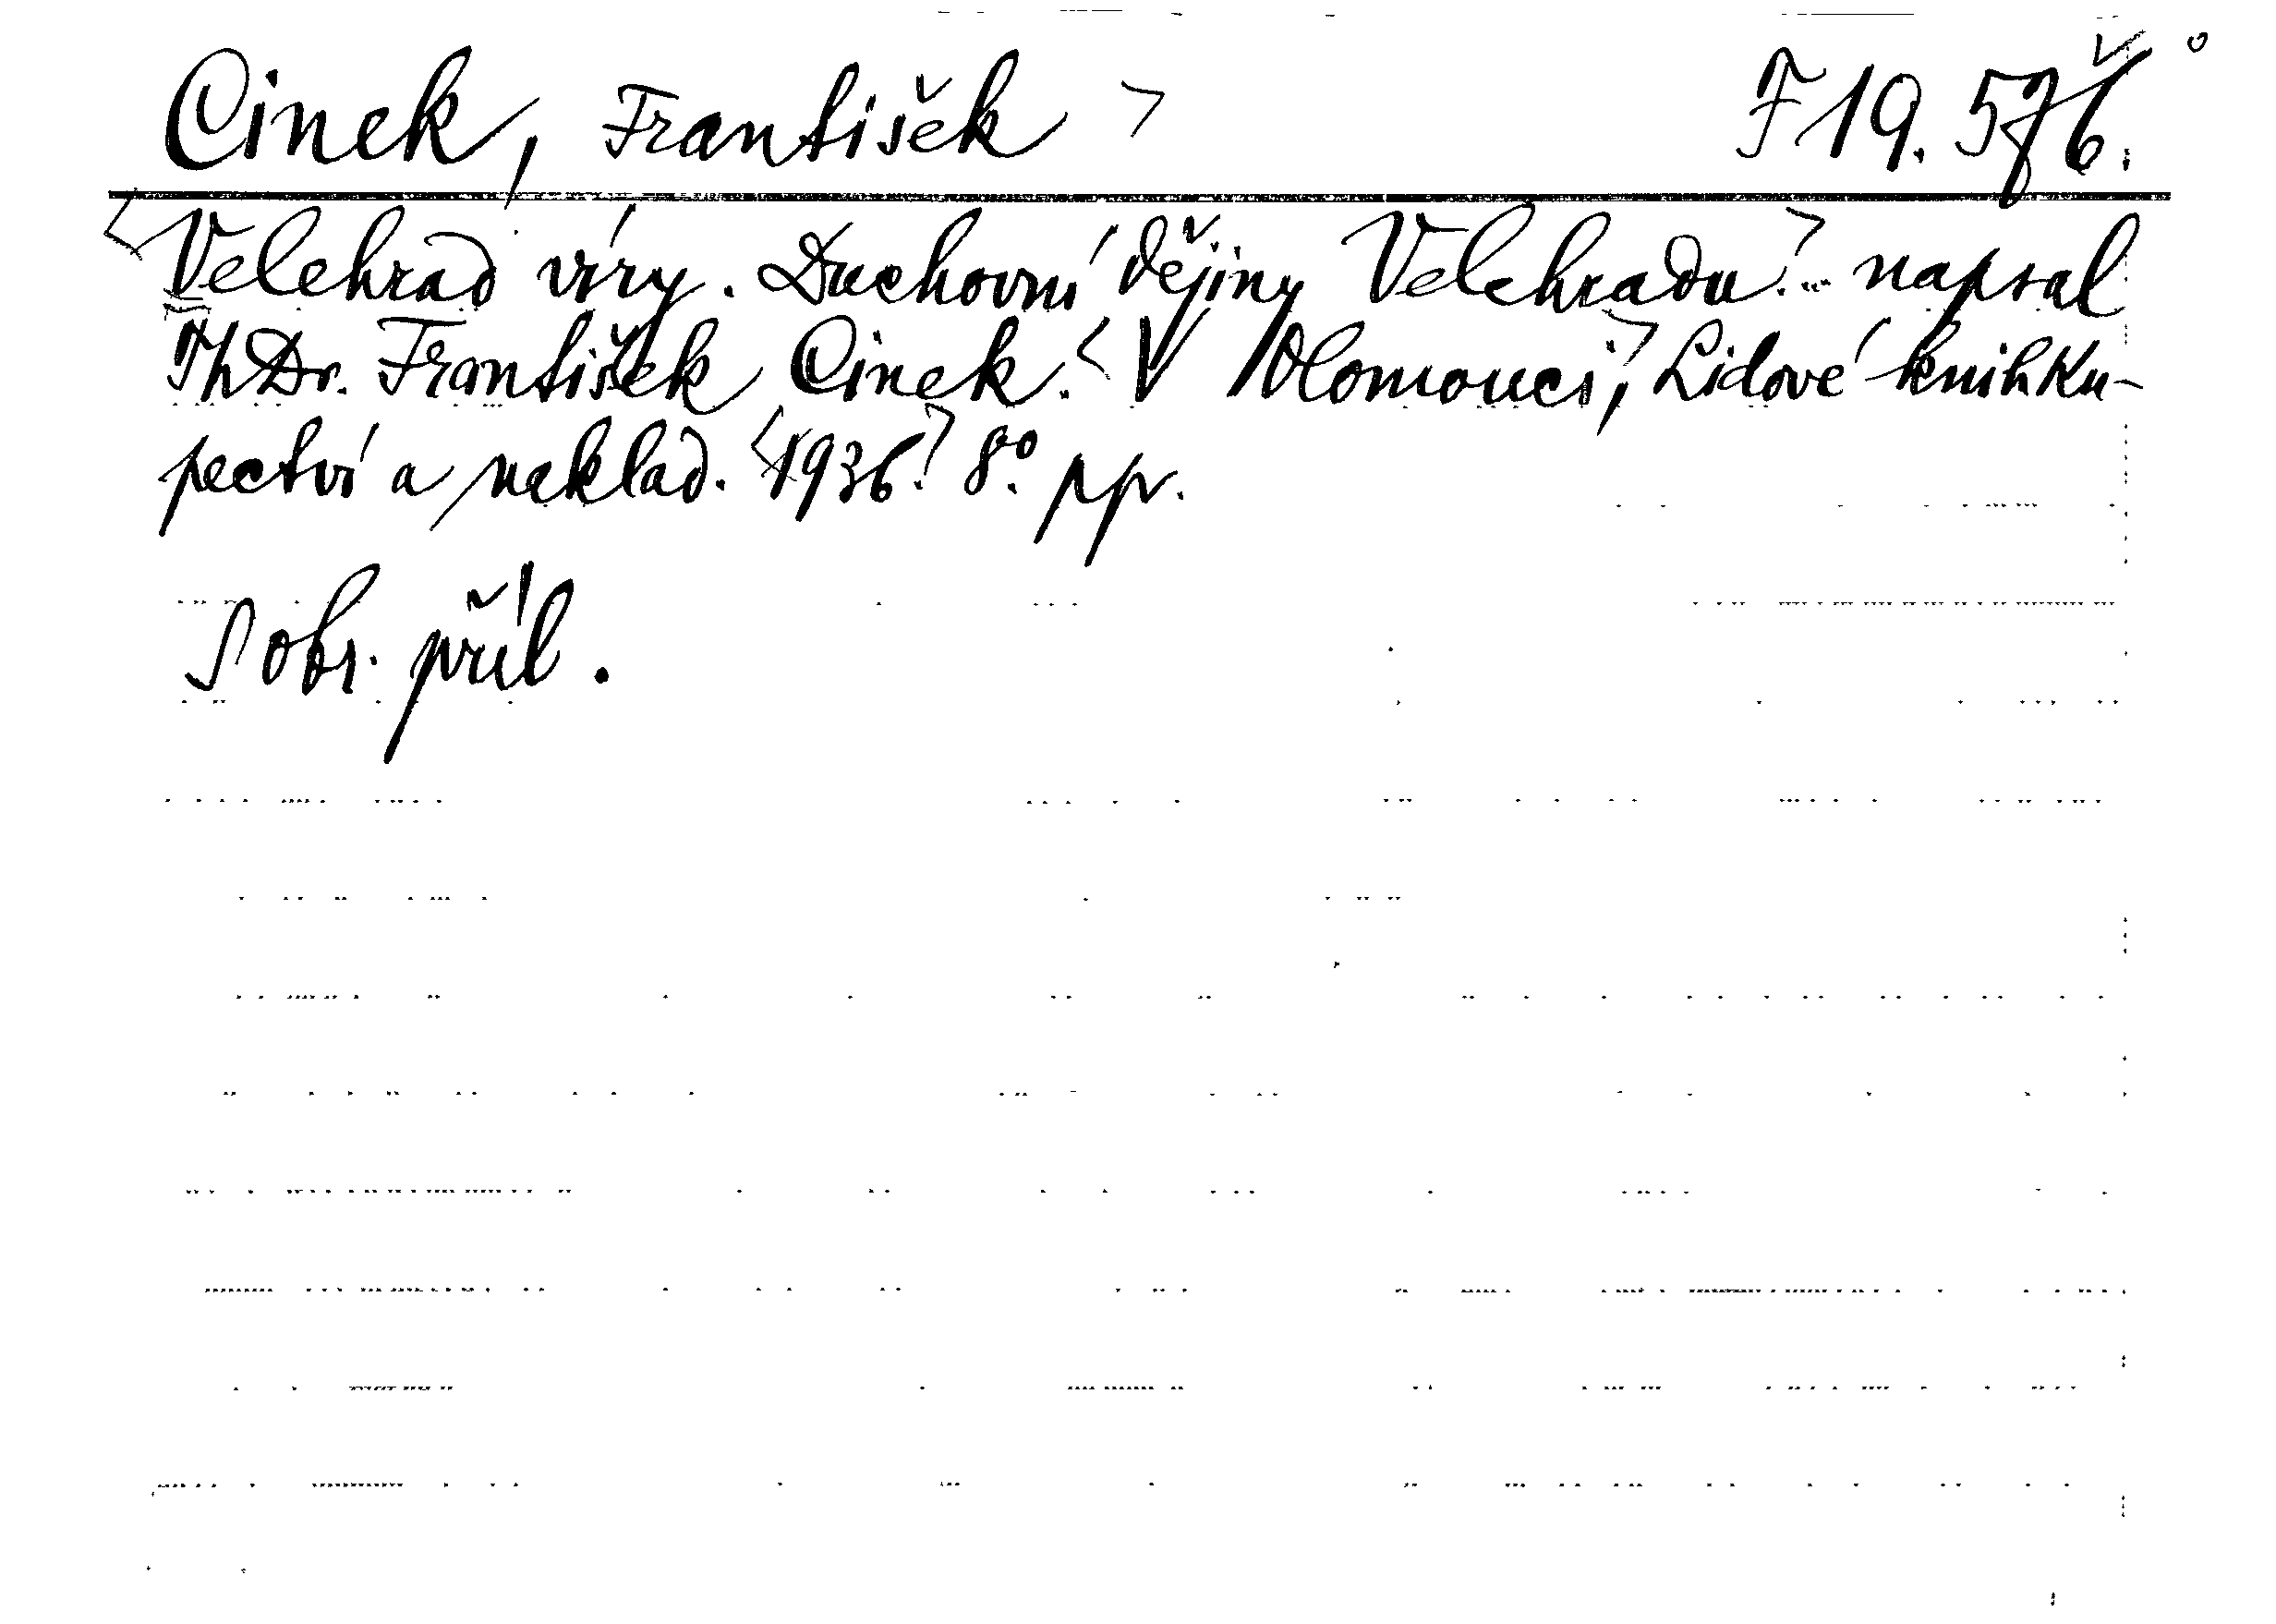 Cinek, František > F 19.576.
<Velehrad víry. Duchovní dějiny Velehradu.>... napsal
ThDr. František Cinek. <V Olomouci,> Lidové knihku-
pectví a naklad. <1936.> 8°. pp.
S obr. příl.